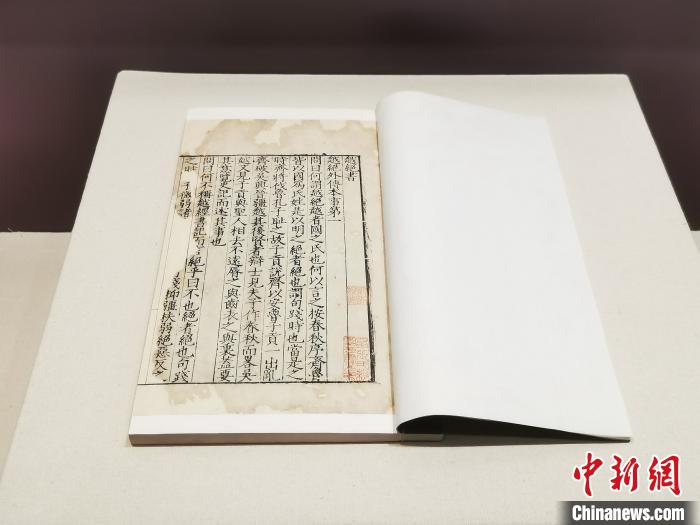 越絕書
越絕外傳本事第一
問曰何謂越絕越者國之氏也何以言之按春秋序齊魯
皆以國為氏姓是以明之絕者絕也謂句踐時也當是之
時齊將伐魯孔子恥之故子貢說齊以安魯子貢一出亂
齊破吳興晉彊越其後賢者辯士見夫子作春秋而畧吳
越又見子貢與聖人相去不遠脣之與齒表之與裏蓋要
其意覽史記而述其事也
問曰何不稱越經書記而言絕乎曰不也絕者絕也句踐
之時 子微弱 踐抑彊扶弱絕惡反之
中新网
Chinanews.com